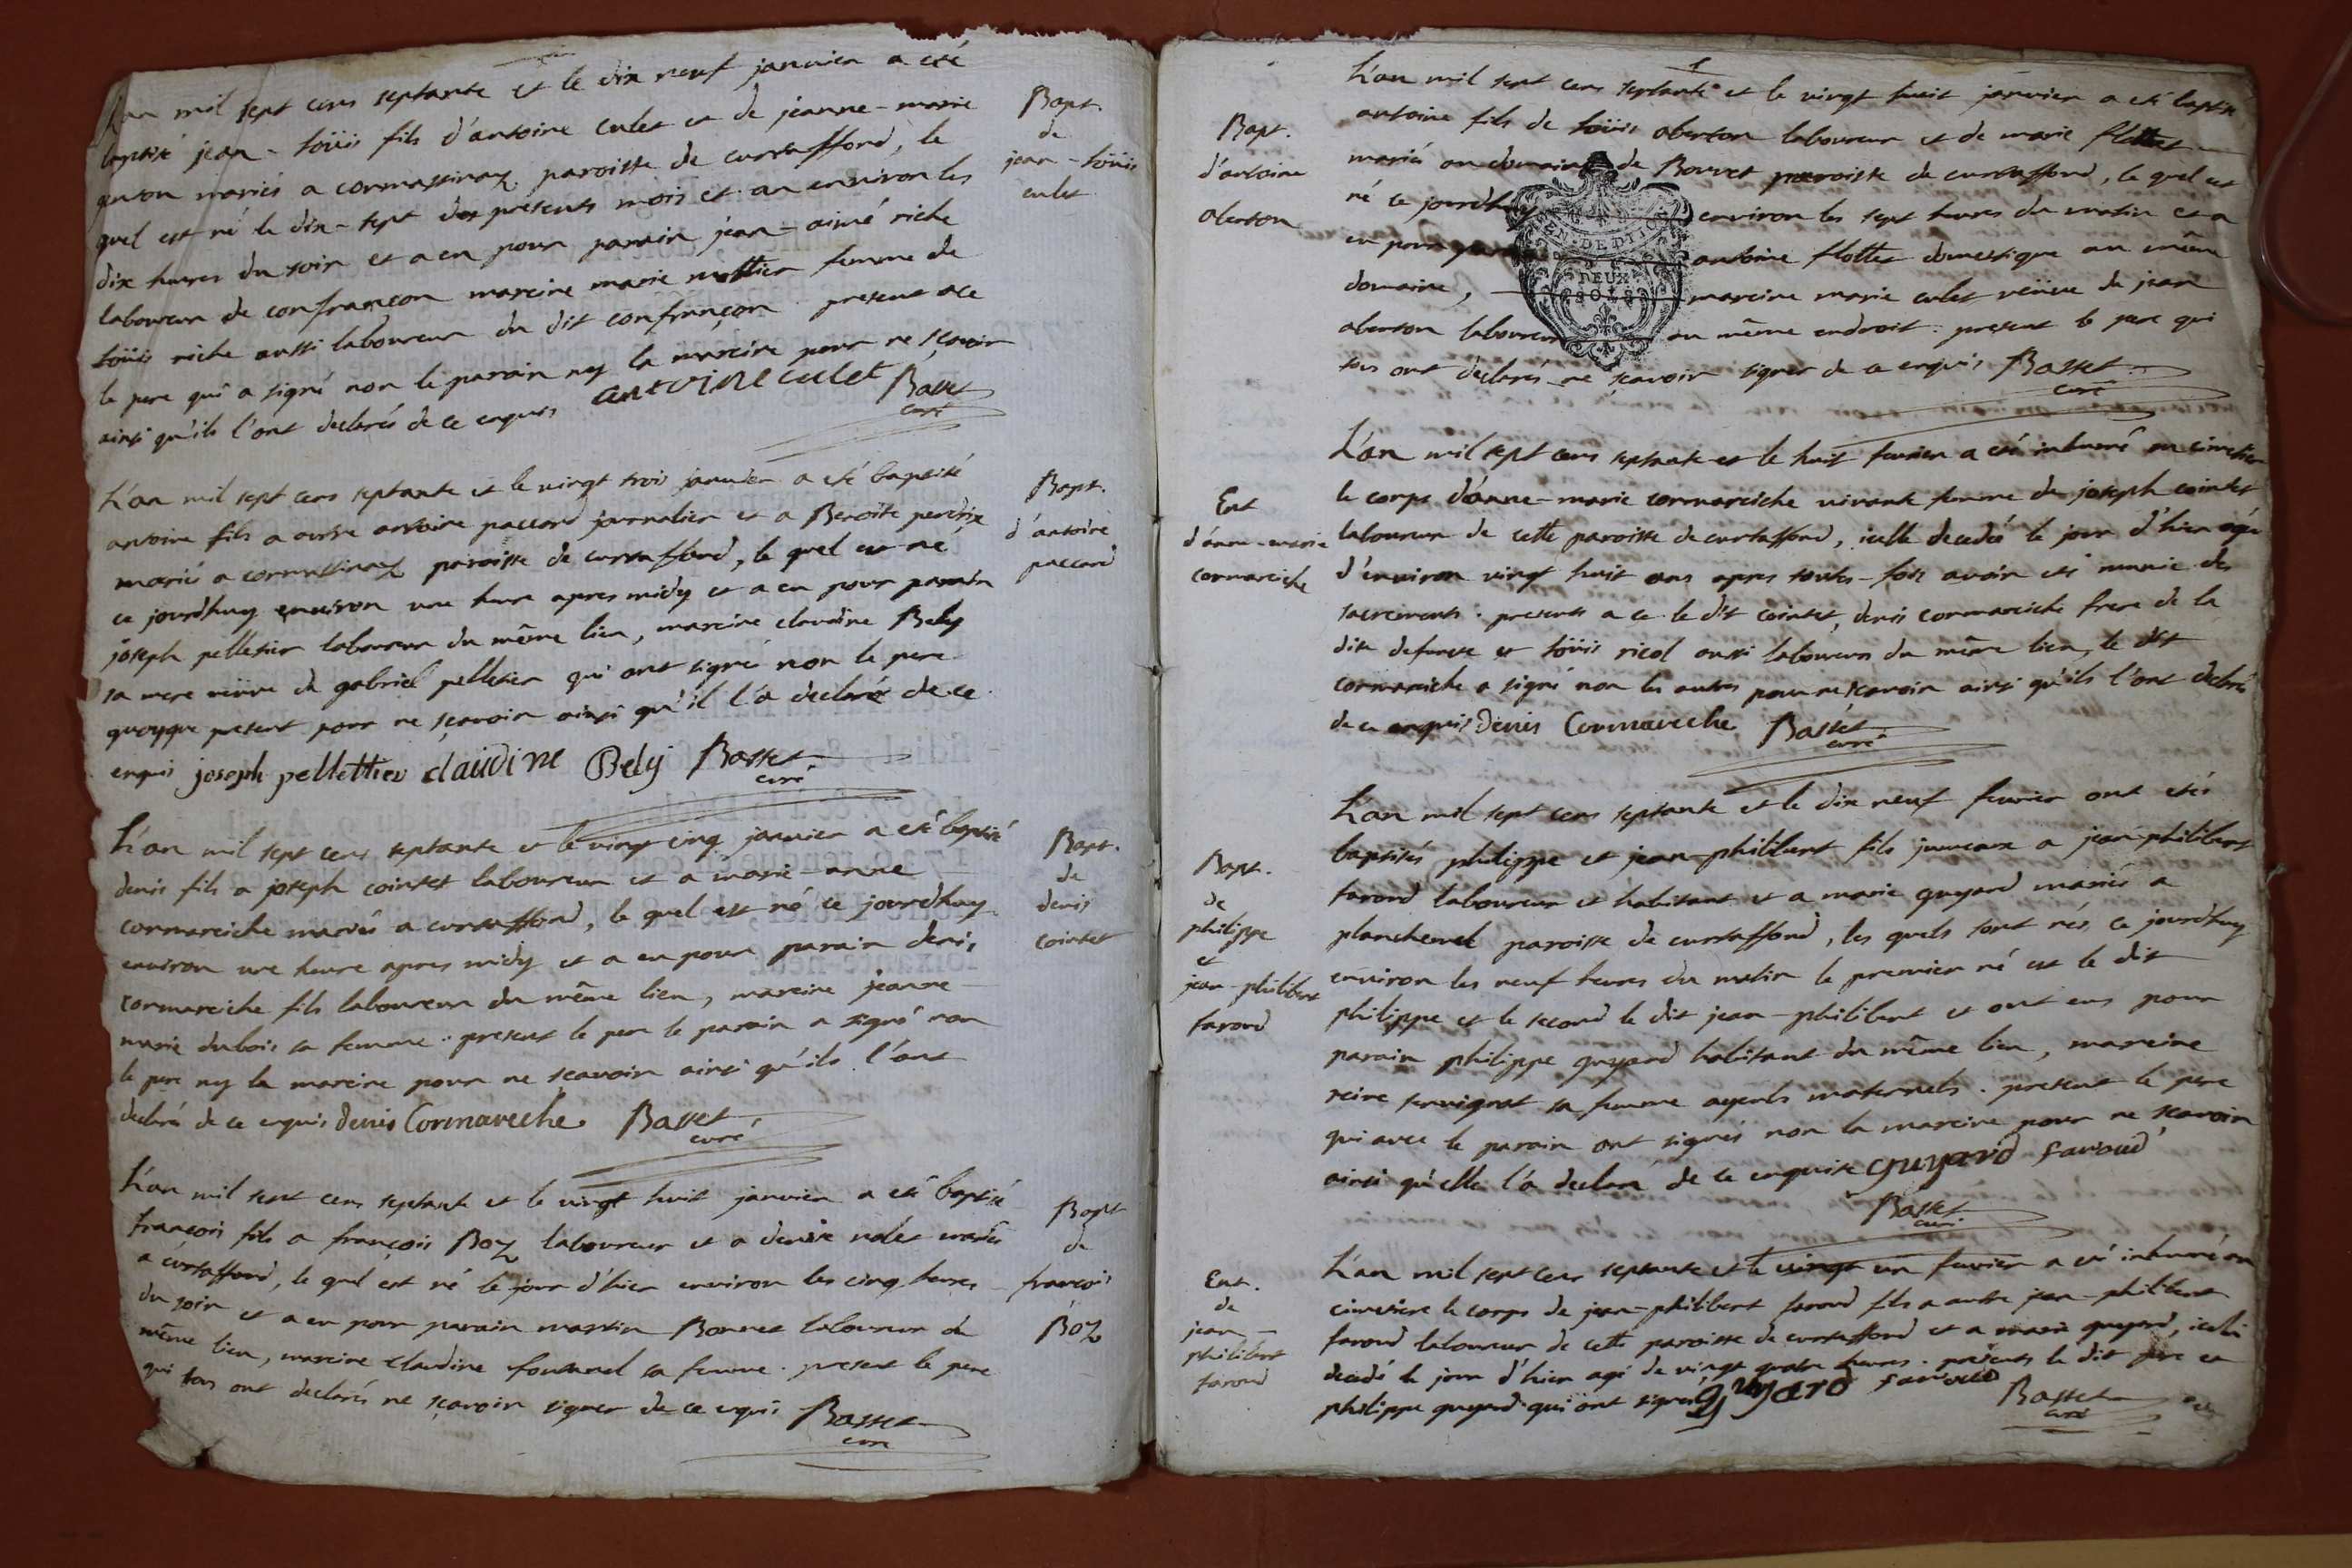 L'an mil sept cens septante et le dix neuf janvier a eté
baptisé jean-loüis fils d'antoine culet et de jeanne-marie
mariés a cormassinaz paroisse de curtaffond, le
quel est né le dix-sept des presents mois et an environ les
dix heures du soir et a eu pour parain jean-aimé riche
laboureur de confrançon mareine marie mottier femme de
loüis riche aussi laboureur du dit confrançon present a ce
le pere qui a signé non le parain ny la mareine pour ne sçavoir
ainsi qu'ils l'ont declarés de ce enquis antoine culet Basset
curé
Bapt.
de
jean-loüis
culet
L'an mil sept cens septante et le vingt trois janvier a eté baptisé
antoine fils a autre antoine paccard journalier et a Benoite perdrix
mariés a cormassinaz paroisse de curtaffond, le quel est né
ce jourdhuy environ une heure apres midy et a eu pour parain
joseph pelletier laboureur du même lieu, mareine claudine Bely
sa mere veüve de gabriel pelletier qui ont signé non le pere
quoyque present pour ne sçavoir ainsi qu'il l'a declaré de ce
enquis joseph pellettier claudine Bely Basset
curé
Bapt.
d'antoine
paccard
L'an mil sept cens septante et le vingt cinq janvier a eté baptisé
denis fils a joseph cointet laboureur et a marie-anne
cormareiche mariés a curtaffond, le quel est né ce jourdhuy
environ une heure apres midy et a eu pour parain denis
cormareiche fils laboureur du même lieu, mareine jeanne-
marie dubois sa femme : present le pere le parain a signé non
le pere ny la mareine pour ne sçavoir ainsi qu'ils l'ont
declaré de ce enquis Denis Cormareche Basset
curé
Bapt.
de
denis
cointet
L'an mil sept cens septante et le vingt huit janvier a eté baptisé
françois fils a françois Boz laboureur et a denise nolet mariés
a curtaffond, le quel est né le jour d'hier environ les cinq heures
du soir et a eu pour parain martin Bonnet laboureur du
même lieu, mareine claudine fontanel sa femme. present le pere
qui tous ont declarés ne sçavoir signer de ce enquis Basset
curé
Bapt
de
françois
Boz
1
L'an mil sept cens septante et le vingt huit janvier a eté baptisé
antoine fils de loüis oberton laboureur et de marie flottet
mariés au domaine de Bouvet paroisse de curtaffond, le quel est
né ce jourdhuy environ les sept heures du matin et a
eu pour parain antoine flottet domestique au même
domaine, mareine marie culet veüve de jean
oberton laboureur au même endroit : present le pere qui
tous ont declarés ne sçavoir signer de ce enquis Basset
curé
EN DEDIT
DEUX
SOLS
Bapt.
d'antoine
oberton
L'an mil sept cens septante et le huit fevrier a eté inhumé au cimetiere
le corps d'anne-marie cormareiche vivante femme de joseph cointet
laboureur de cette paroisse de curtaffond, icelle decedée le jour d'hier agée
d'environ vingt huit ans apres toutes-fois avoir eté munie des
sacrements. presents a ce le dit cointet, denis cormareiche frere de la
dite defunte et loüis ricol aussi laboureurs du même lieu, le dit
cormareiche a signé non les autres pour ne sçavoir ainsi qu'ils l'ont declarés
de ce enquis Denis Cormareche Basset
curé
Ent
d'anne-marie
cormareiche
L'an mil sept cens septante et le dix neuf fevrier ont etés
baptisés philippe et jean-philibert fils jumeaux a jean-philibert
farond laboureur et habitant et a marie guyard mariés a
planchenel paroisse de curtaffond, les quels sont nés ce jourdhuy
environ les neuf heures du matin le premier né est le dit
philippe et le second le dit jean-philibert et ont eus pour
parain philippe guyard habitant du même lieu, mareine
reine servignat sa femme ayeuls maternels. present le pere
qui avec le parain ont signés non la mareine pour ne sçavoir
ainsi qu'elle l'a declaré de ce enquise guyard faroud
Basset
curé
Bapt.
de
philippe
et
jean-philibert
farond
L'an mil sept cens septante et le vingt un fevrier a eté inhumé au
cimetiere le corps de jean-philibert farond fils a autre jean-philibert
farond laboureur de cette paroisse de curtaffond et a marie guyard, icelui
decedé le jour d'hier agé de vingt quatre heures. presents le dit pere et
philippe guyard qui ont signés guyard faroud Basset
curé
Ent.
de
jean-
philibert
farond